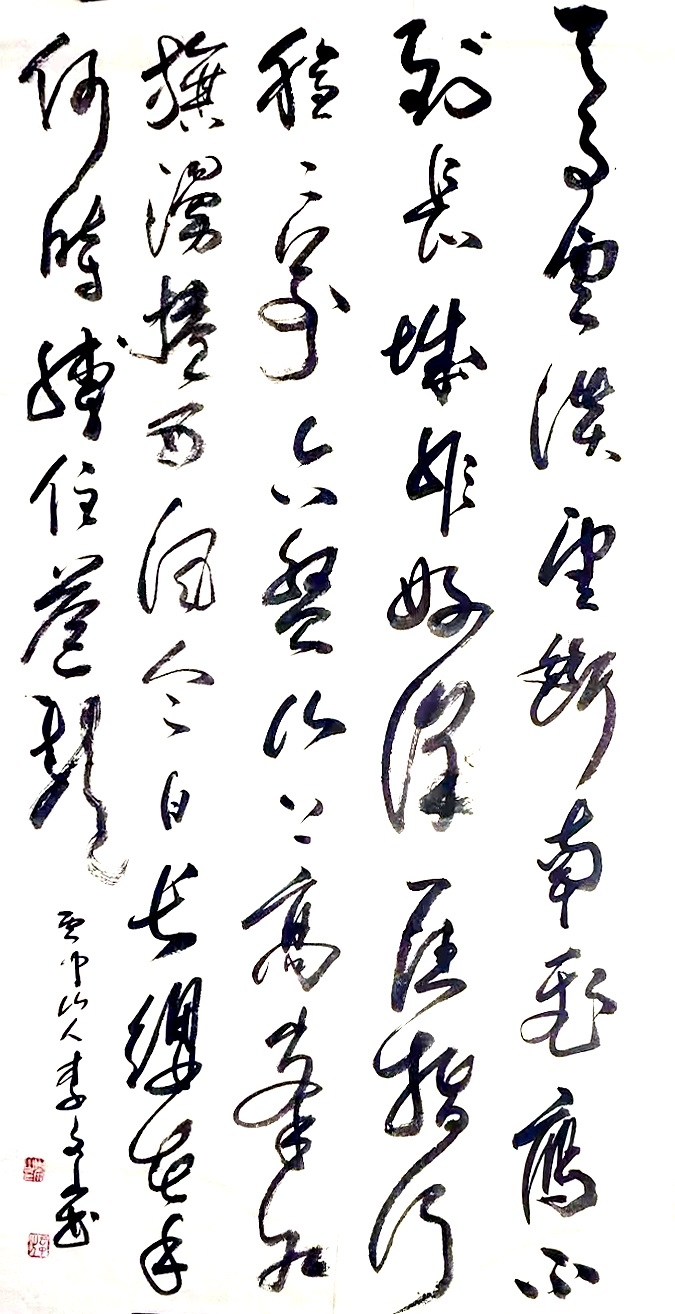 天高雲淡望斷南飛雁不
到長城非好漢屈指行
程二萬六盤山上高峯紅
旗漫捲西風今日长纓在手
何時縛住蒼龍
雲中山人李文